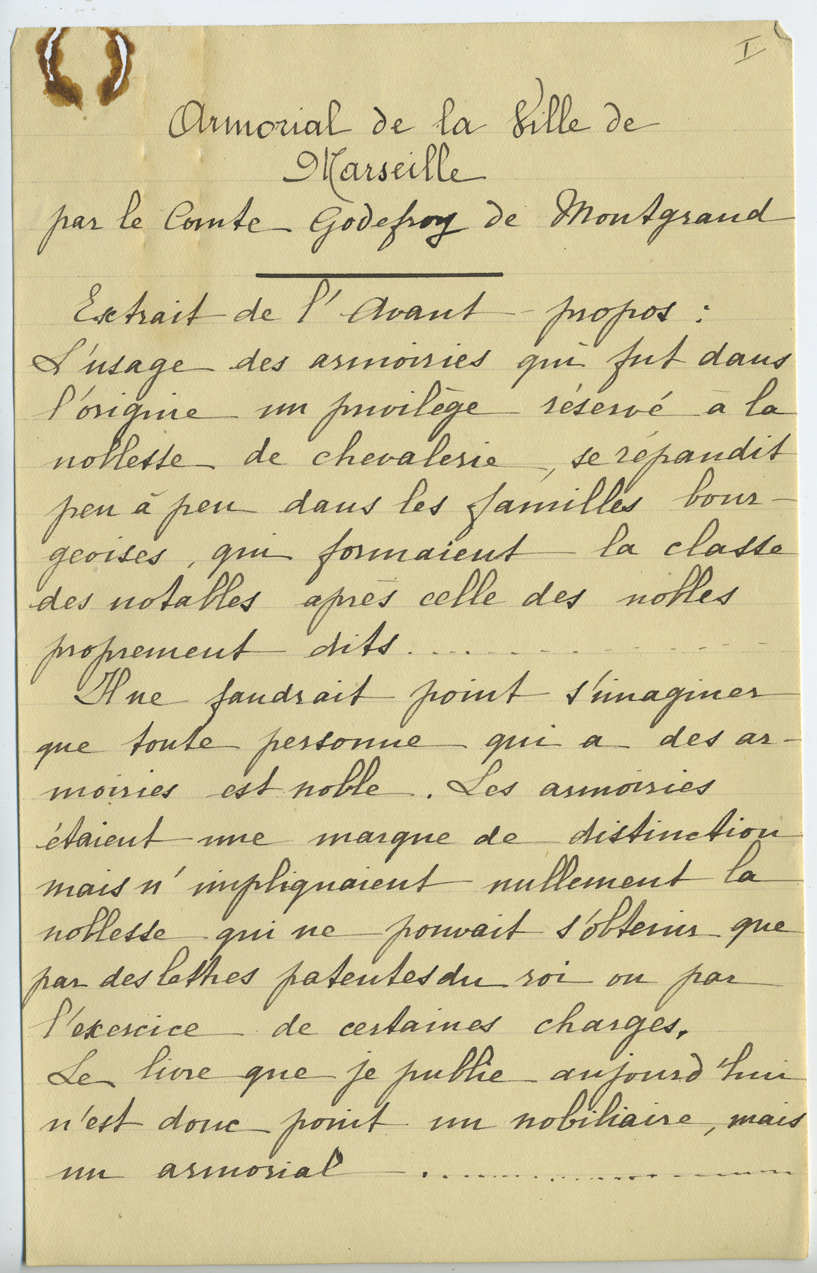 I
Armorial de la Ville de
Marseille
par le Comte Godefroy de Montgrand
Extrait de l'Avant-propos :
L'usage des armoiries qui fut dans
l'origine un privilège réservé à la
noblesse de chevalerie, se répandit
peu à peu dans les familles bour-
geoises, qui formaient la classe
des notables après celle des nobles
proprement dits...........
Il ne faudrait point s'imaginer
que toute personne qui a des ar-
moiries est noble. Les armoiries
étaient une marque de distinction
mais n'impliquaient nullement la
noblesse qui ne pouvait s'obtenir que
par des lettres patentes du roi ou par
l'exercice de certaines charges.
Le livre que je publie aujourd'hui
n'est donc point un nobiliaire, mais
un armorial ..............